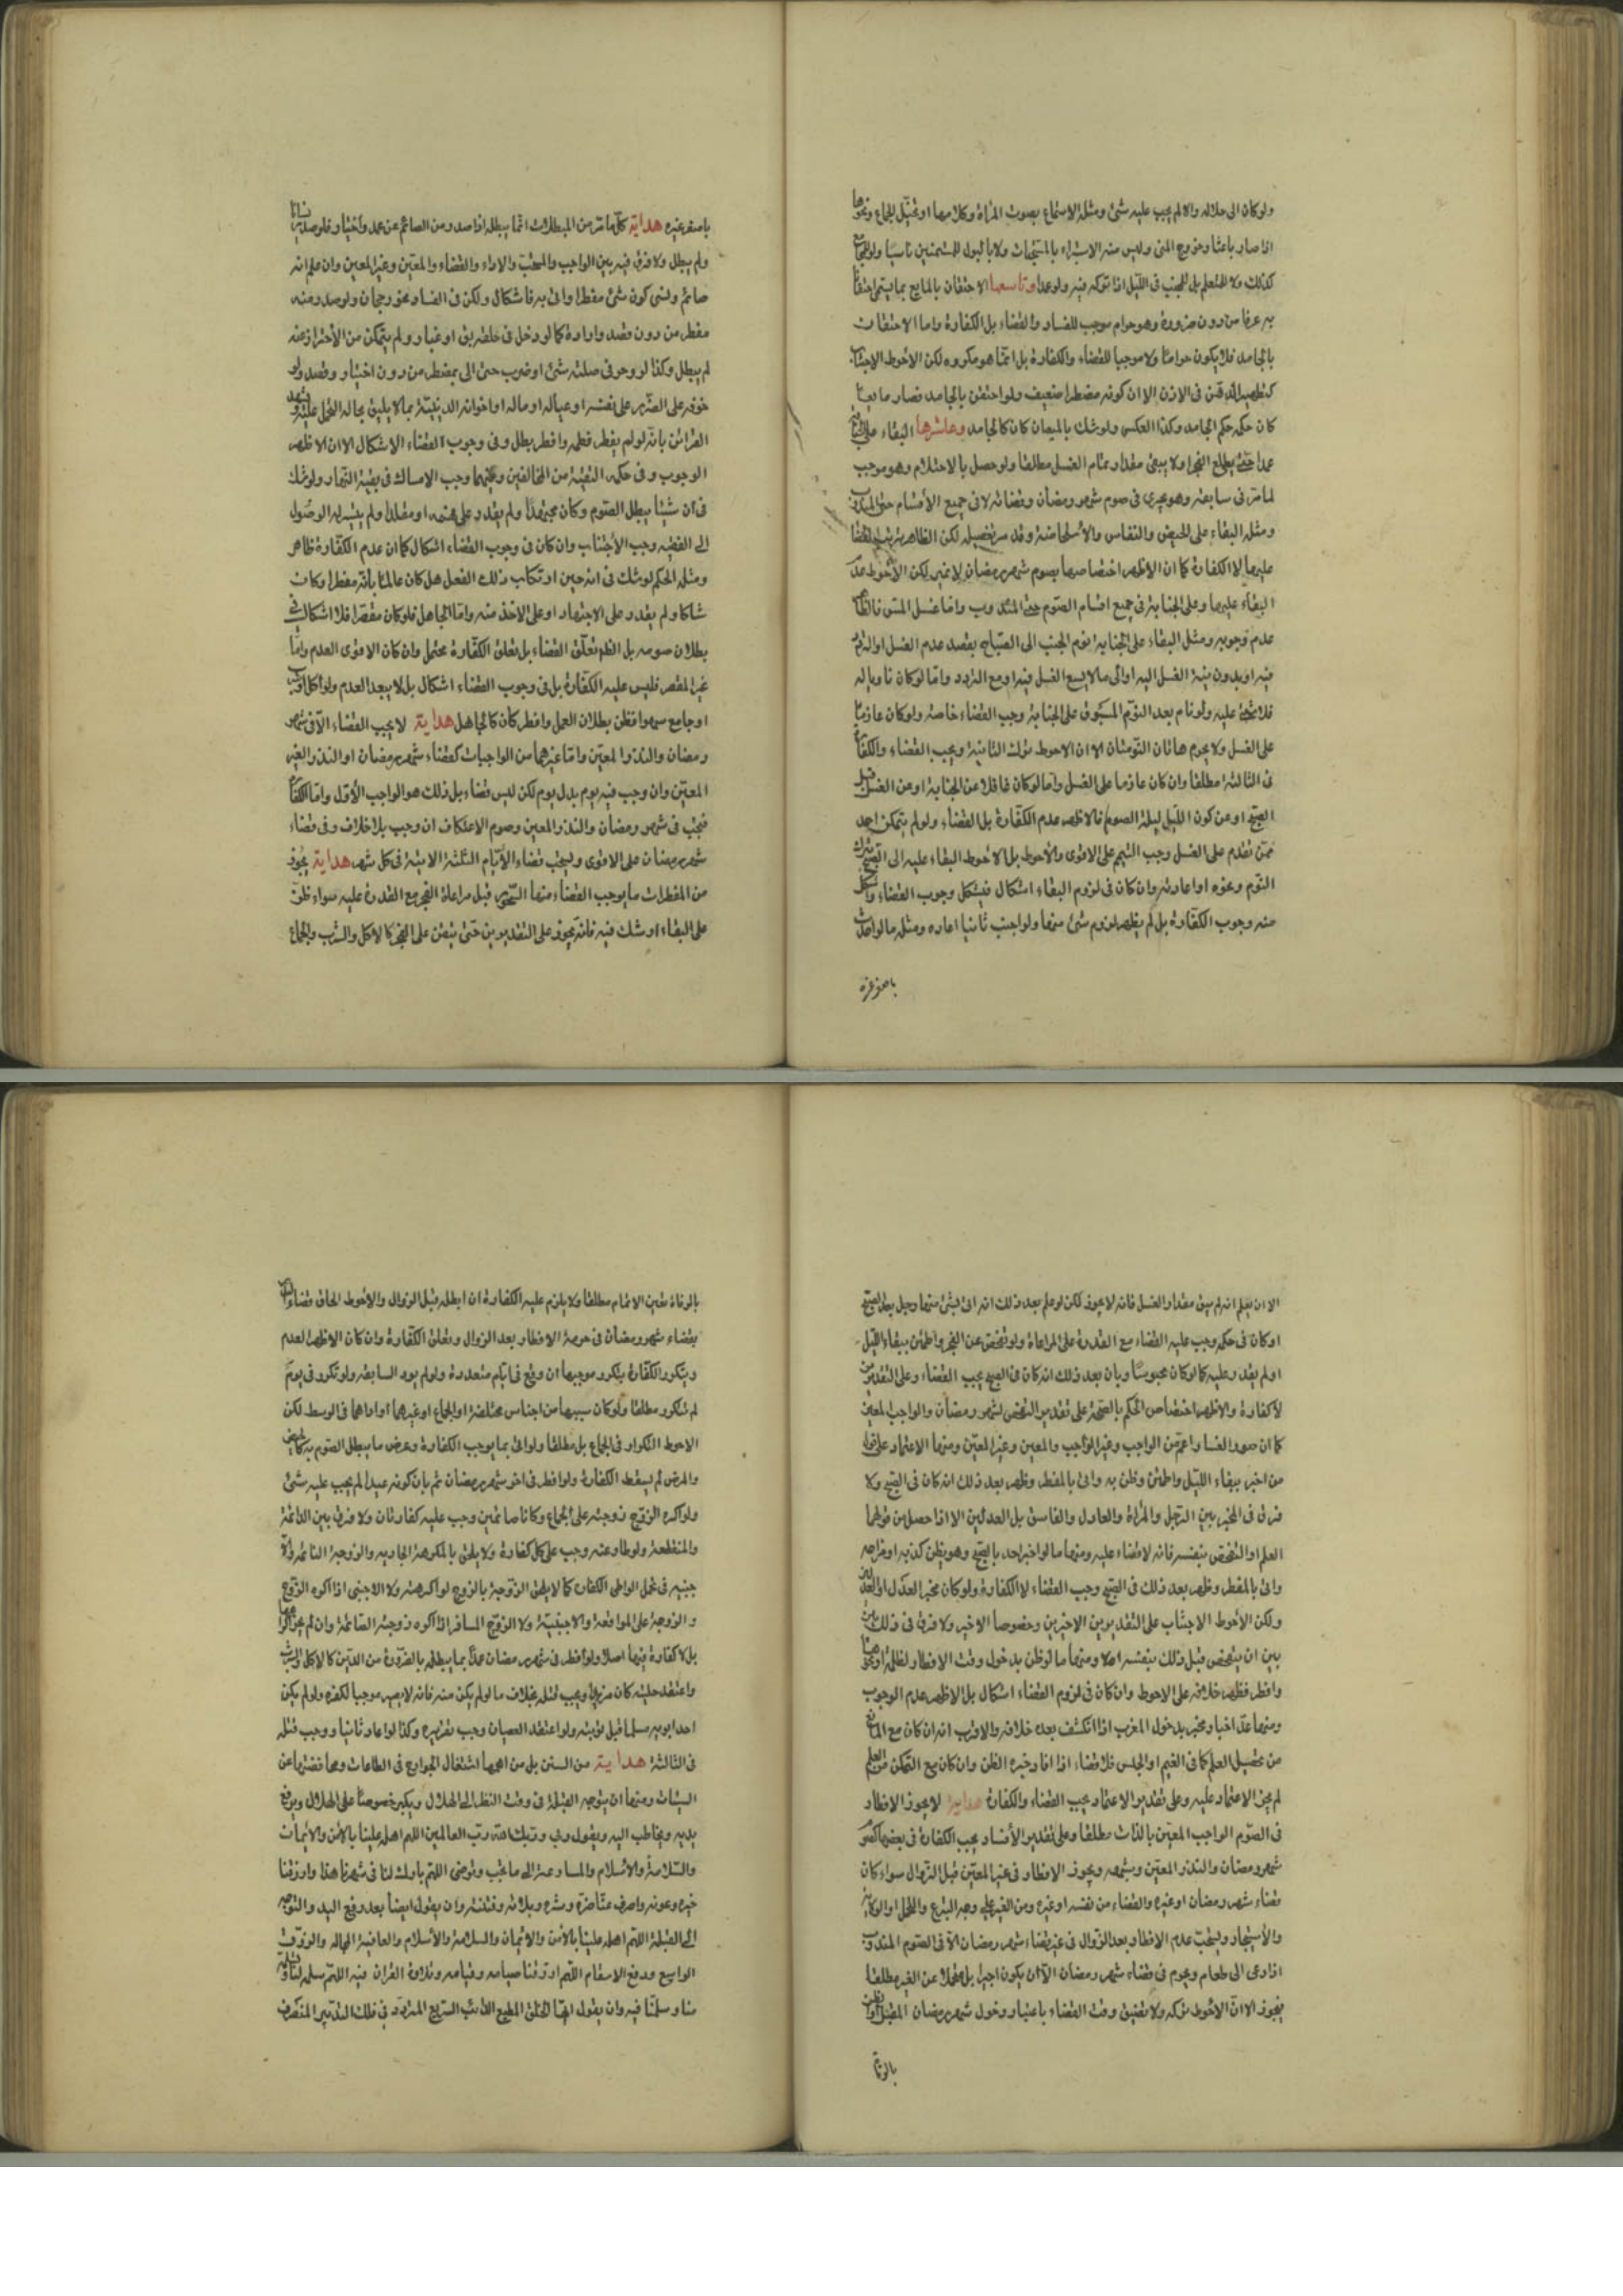 ولو كان الى حلاله والا لم يجب عليه شئ ومثله الاستماع بصوت المرأة وكلامها او تخيل الجماع ونحوها
اذا صار باعثا وخروج المنى وليس منه الاستبراء بالمستحبات ولا بالبول للمستمنين ناسيا
كذلك ولا المحتلم بل المجنب فى الليل اذا تركه فيه ولو عمدا وتاسعها الاحتقان بالمايع بما يسمى احتقانا
به عرفا من دون ضرورة وهو حرام موجب للفساد والقضاء بل الكفارة واما الاحتقان
بالجامد فلا يكون حراما ولا موجبا للقضاء والكفارة بل انما هو مكروه لكن الاحوط الاجتناب
كتطهير الدهن فى الاذن الا ان كونه مضطرا ضعيف ولو احتقن بالجامد فصار مايعا
كان حكمه حكم الجامد وكذا العكس ولو شك بالميعان كان كالجامد وعاشرها البقاء على الجنابة
عمدا حتى يطلع الفجر او لا يبقى مقدار تمام الغسل مطلقا ولو حصل بالاحتلام وهو موجب
لما مر فى سابعه وهو يجرى فى صوم شهر رمضان وقضائه لا فى جميع الأقسام حتى المندوب
ومثله البقاء على الحيض والنفاس والاستحاضة وقد مر تفصيله لكن الظاهر ترتب القضاء
عليهما لا الكفارة كما ان الاظهر اختصاصها بصوم شهر رمضان لا غير لكن الأحوط عدم
البقاء عليهما وعلى الجنابة فى جميع اقسام الصوم حتى المندوب واما غسل المس فالظاهر
عدم وجوبه ومثل البقاء على الجنابة نوم الجنب الى الصباح بقصد عدم الغسل او التردد
فيه او بدون نية الغسل اليه او الى ما لا يسع الغسل فيه او مع التردد واما لو كان ناويا له
فلا شئ عليه ولو نام بعد النوم المسبوق على الجنابة وجب القضاء خاصة ولو كان عازما
على الغسل ولا يحرم هاتان النومتان الا ان الاحوط ترك الثانية ويجب القضاء والكفارة
فى الثالثة مطلقا وان كان عازما على الغسل واما لو كان غافلا عن الجنابة او عن الغسل قبل
الصبح او عن كون الليل ليلة الصوم فالاظهر عدم الكفارة بل القضاء ولو لم يتمكن احد
ممن تقدم على الغسل وجب التيمم على الاقوى والأحوط بل الاحوط البقاء عليه الى الصبح بترك
النوم ونحوه او اعادته وان كان فى لزوم البقاء اشكال فيشكل وجوب القضاء واشكل
منه وجوب الكفارة بل لم يظهر لزوم شئ منها ولو اجنب ثانيا اعاده ومثله ما لو احدث
باصغر غيره
باصغر غيره هداية كل ما مر من المبطلات انما يبطل اذا صدر من الصائم عن عمد واختيار فلو صدر نسيانا
ولم يبطل ولا فرق فيه بين الواجب والمستحب والاداء والقضاء والمعين وغير المعين وان علم انه
صائم ونسى كون شئ مفطرا واتى به فاشكال ولكن فى الفساد نحو رجحان ولو صدر منه
مفطر من دون قصد وارادة كما لو دخل فى حلقه بق او غبار ولم يتمكن من الأحتراز عنه
لم يبطل وكذا لو وجر فى حلقه شئ او ضرب حتى الى بمضطر من دون اختيار وقصد ولو
خوفه على الضرر على نفسه او عياله او ماله او اخوانه الدينية بما لا يليق بحاله التحمل عليه وشهد
القرائن بانه لو لم يفطر قطعه وافطر بطل وفى وجوب القضاء الاشكال الا ان الاظهر
الوجوب وفى حكمه التقية من المخالفين وعليهما وجب الامساك فى بقية النهار ولو شك
فى ان شيئا يبطل الصوم وكان مجتهدا ولم يقدر على فهمه او مقلدا ولم يتيسر له الوصول
الى الفقيه وجب الأجتناب وان كان فى وجوب القضاء اشكال كما ان عدم الكفارة ظاهر
ومثله الحكم لو شك فى انه حين ارتكاب ذلك الفعل هل كان عالما بانه مفطر او كان
شاكا ولم يقدر على الاجتهاد او على الاخذ منه واما الجاهل فلو كان مقصرا فلا اشكال فى
بطلان صومه بل الظاهر تعلق القضاء بل تعلق الكفارة محتمل وان كان الاقوى العدم واما
غير المقصر فليس عليه الكفارة بل فى وجوب القضاء اشكال بل لا يبعد العدم ولو اكل او شرب
او جامع سهوا فظن بطلان العمل وافطر كان كالجاهل هداية لا يجب القضاء الا فى شهر
رمضان والنذر المعين واما غيرهما من الواجبات كقضاء شهر رمضان او النذر الغير
المعين وان وجب فيه يوم بدل يوم لكن ليس قضاء بل ذلك هو الواجب الأول واما الكفارة
فتجب فى شهر رمضان والنذر المعين وصوم الاعتكاف ان وجب بلا خلاف وفى قضاء
شهر رمضان على الاقوى ويستحب قضاء الأيام الثلثة الاتية فى كل شهر هداية يجوز
من المفطرات ما يوجب القضاء منها السحور قبل مراعاة الفجر مع القدرة عليه سواء ظن
على البقاء او شك فيه فانه يجوز على التقديرين حتى يتيقن على الفجر كالاكل والشرب والجماع
الا ان يعلم انه لم يبق مقدار الغسل فانه لا يجوز لكن لو علم بعد ذلك انه اتى بشئ منها وجل بعد الصبح
او كان فى حكمه وجب عليه القضاء مع القدرة على المراعاة ولو تفحص عن الفجر واطمئن ببقاء الليل
او لم يقدر عليه كما لو كان محبوسا وبان بعد ذلك انه كان فى الصبح يجب القضاء وعلى التقديرين
لا كفارة والاظهر اختصاص الحكم بالصحة على تقدير التفحص لشهر رمضان والواجب المعين
كما ان صور الفساد اعم من الواجب وغير الواجب والمعين وغير المعين ومنها الاعتماد على قول
من اخبر ببقاء الليل واطمئن وظن به واتى بالمفطر وظهر بعد ذلك انه كان فى الصبح ولا
فرق فى المخبر بين الرجل والمرأة والعادل والفاسق بل العدلين الا اذا حصل من قولهما
العلم او التفحص بنفسه فانه لا قضاء عليه ومنها ما لو اخبر احد بالصبح وهو يظن كذبه او مزاحه
واتى بالمفطر وظهر بعد ذلك فى الصبح وجب القضاء لا الكفارة ولو كان مخبر العدل او العدلين
ولكن الأحوط الاجتناب على التقديرين الاخيرين وخصوصا الاخير ولا فرق فى ذلك بين
بين ان يتفحص قبل ذلك بنفسه او لا ومنها ما لو ظن بدخول وقت الافطار لظلمة او نحوها
وافطر فظهر خلافه على الاحوط وان كان فى لزوم القضاء اشكال بل الاظهر عدم الوجوب
ومنها عد اخبار مخبر بدخول المغرب اذا انكشف بعده خلافه والاقرب انه ان كان مع المانع
من تحصيل العلم كما فى الغيم او الحبس فلا قضاء اذا افاد خبره الظن وان كان مع التمكن من العلم
لم يجز الاعتماد عليه وعلى تقدير الاعتماد يجب القضاء والكفارة هداية لا يجوز الافطار
فى الصوم الواجب المعين بالذات مطلقا وعلى تقدير الأفساد يجب الكفارة فى بعضها كصوم
شهر رمضان والنذر المعين وشبهه ويجوز الافطار فى غير المعين قبل الزوال سواء كان
قضاء شهر رمضان او غيره والقضاء من نفسه او غيره ومن الغير على وجه التبرع والتحمل او الوكالة
والأستيجار ويستحب عدم الافطار بعد الزوال فى غير قضاء شهر رمضان الا فى الصوم المندوب
اذا دعى الى طعام ويحرم فى قضاء شهر رمضان الا ان يكون اجيرا بل تحملا عن الغير مطلقا
فيجوز الا ان الأحوط تركه ولا يتضيق وقت القضاء باعتبار دخول شهر رمضان المقبل
بالوفاة
بالوفاة تعين الاتمام مطلقا ولا يلزم عليه الكفارة ان ابطله قبل الزوال والاحوط الحاق قضاء
بقضاء شهر رمضان فى حرمة الافطار بعد الزوال وتعلق الكفارة وان كان الاظهر العدم
ويتكرر الكفارة بتكرر موجبها ان وقع فى ايام متعددة ولو لم يود السابقة ولو تكرر فى يوم
لم تتكرر مطلقا ولو كان سببها من اجناس مختلفة او الجماع او غيرهما او اداهما فى الوسط لكن
الاحوط التكرار فى الجماع بل مطلقا ولو اتى بما يوجب الكفارة وعرض ما يبطل الصوم به كالحيض
والمرض لم يسقط الكفارة ولو افطر فى اخر شهر رمضان ثم بان كونه عيدا لم يجب عليه شئ
ولو اكره الزوج زوجته على الجماع وكانا صائمين وجب عليه كفارتان ولا فرق بين الدائمة
والمنقطعة ولو طاوعته وجب على كل كفارة ولا يلحق بالمكرهة الجارية والزوجة النائمة والا
جنبية فى تحمل الواطى الكفارة كما لا يلحق الزوجة بالزوج لو اكرهته ولا الاجنبى اذا اكره الزوج
والزوجة على المواقعة والاجنبية ولا الزوج المسافر اذا اكره زوجته الصائمة وان لم يجز اكراهها
بل لا كفارة فيها اصلا ولو افطر فى شهر رمضان عمدا بما يبطله بالضرورة من الدين كالاكل والشرب
واعتقد حليته كان مرتدا ويجب قتله بخلاف ما لو لم يكن منه فانه لا يصير موجبا لكفره ولو لم يكن
احد ابويه مسلما قبل توبته ولو اعتقد العصيان وجب تعزيره وكذا لو اعاد ثانيا ووجب قتله
فى الثالثة هداية من السنن بل من اهمها اشتغال الجوارح فى الطاعات ومحافظتها عن
السيئات ومنها ان يتوجه القبلة فى وقت النظر الى الهلال ويكبر خصوصا على الهلال ويرفع
يديه ويخاطب اليه ويقول ربى وربك الله رب العالمين اللهم اهله علينا بالأمن والأيمان
والسلامة والأسلام والمسارعة الى ما تحب وترضى اللهم بارك لنا فى شهرنا هذا وارزقنا
خيره وعونه واصرف عنا ضره وشره وبلائه وفتنته وان يقول ايضا بعد رفع اليد والتوجه
الى القبلة اللهم اهله علينا بالأمن والأيمان والسلامة والأسلام والعافية المجللة والرزق
الواسع ودفع الاسقام اللهم ارزقنا صيامه وقيامه وتلاوة القران فيه اللهم سلمه لنا وتسلمه
منا وسلمنا فيه وان يقول ايها الخلق المطيع الدائب السريع المتردد فى فلك التدبير المتصرف